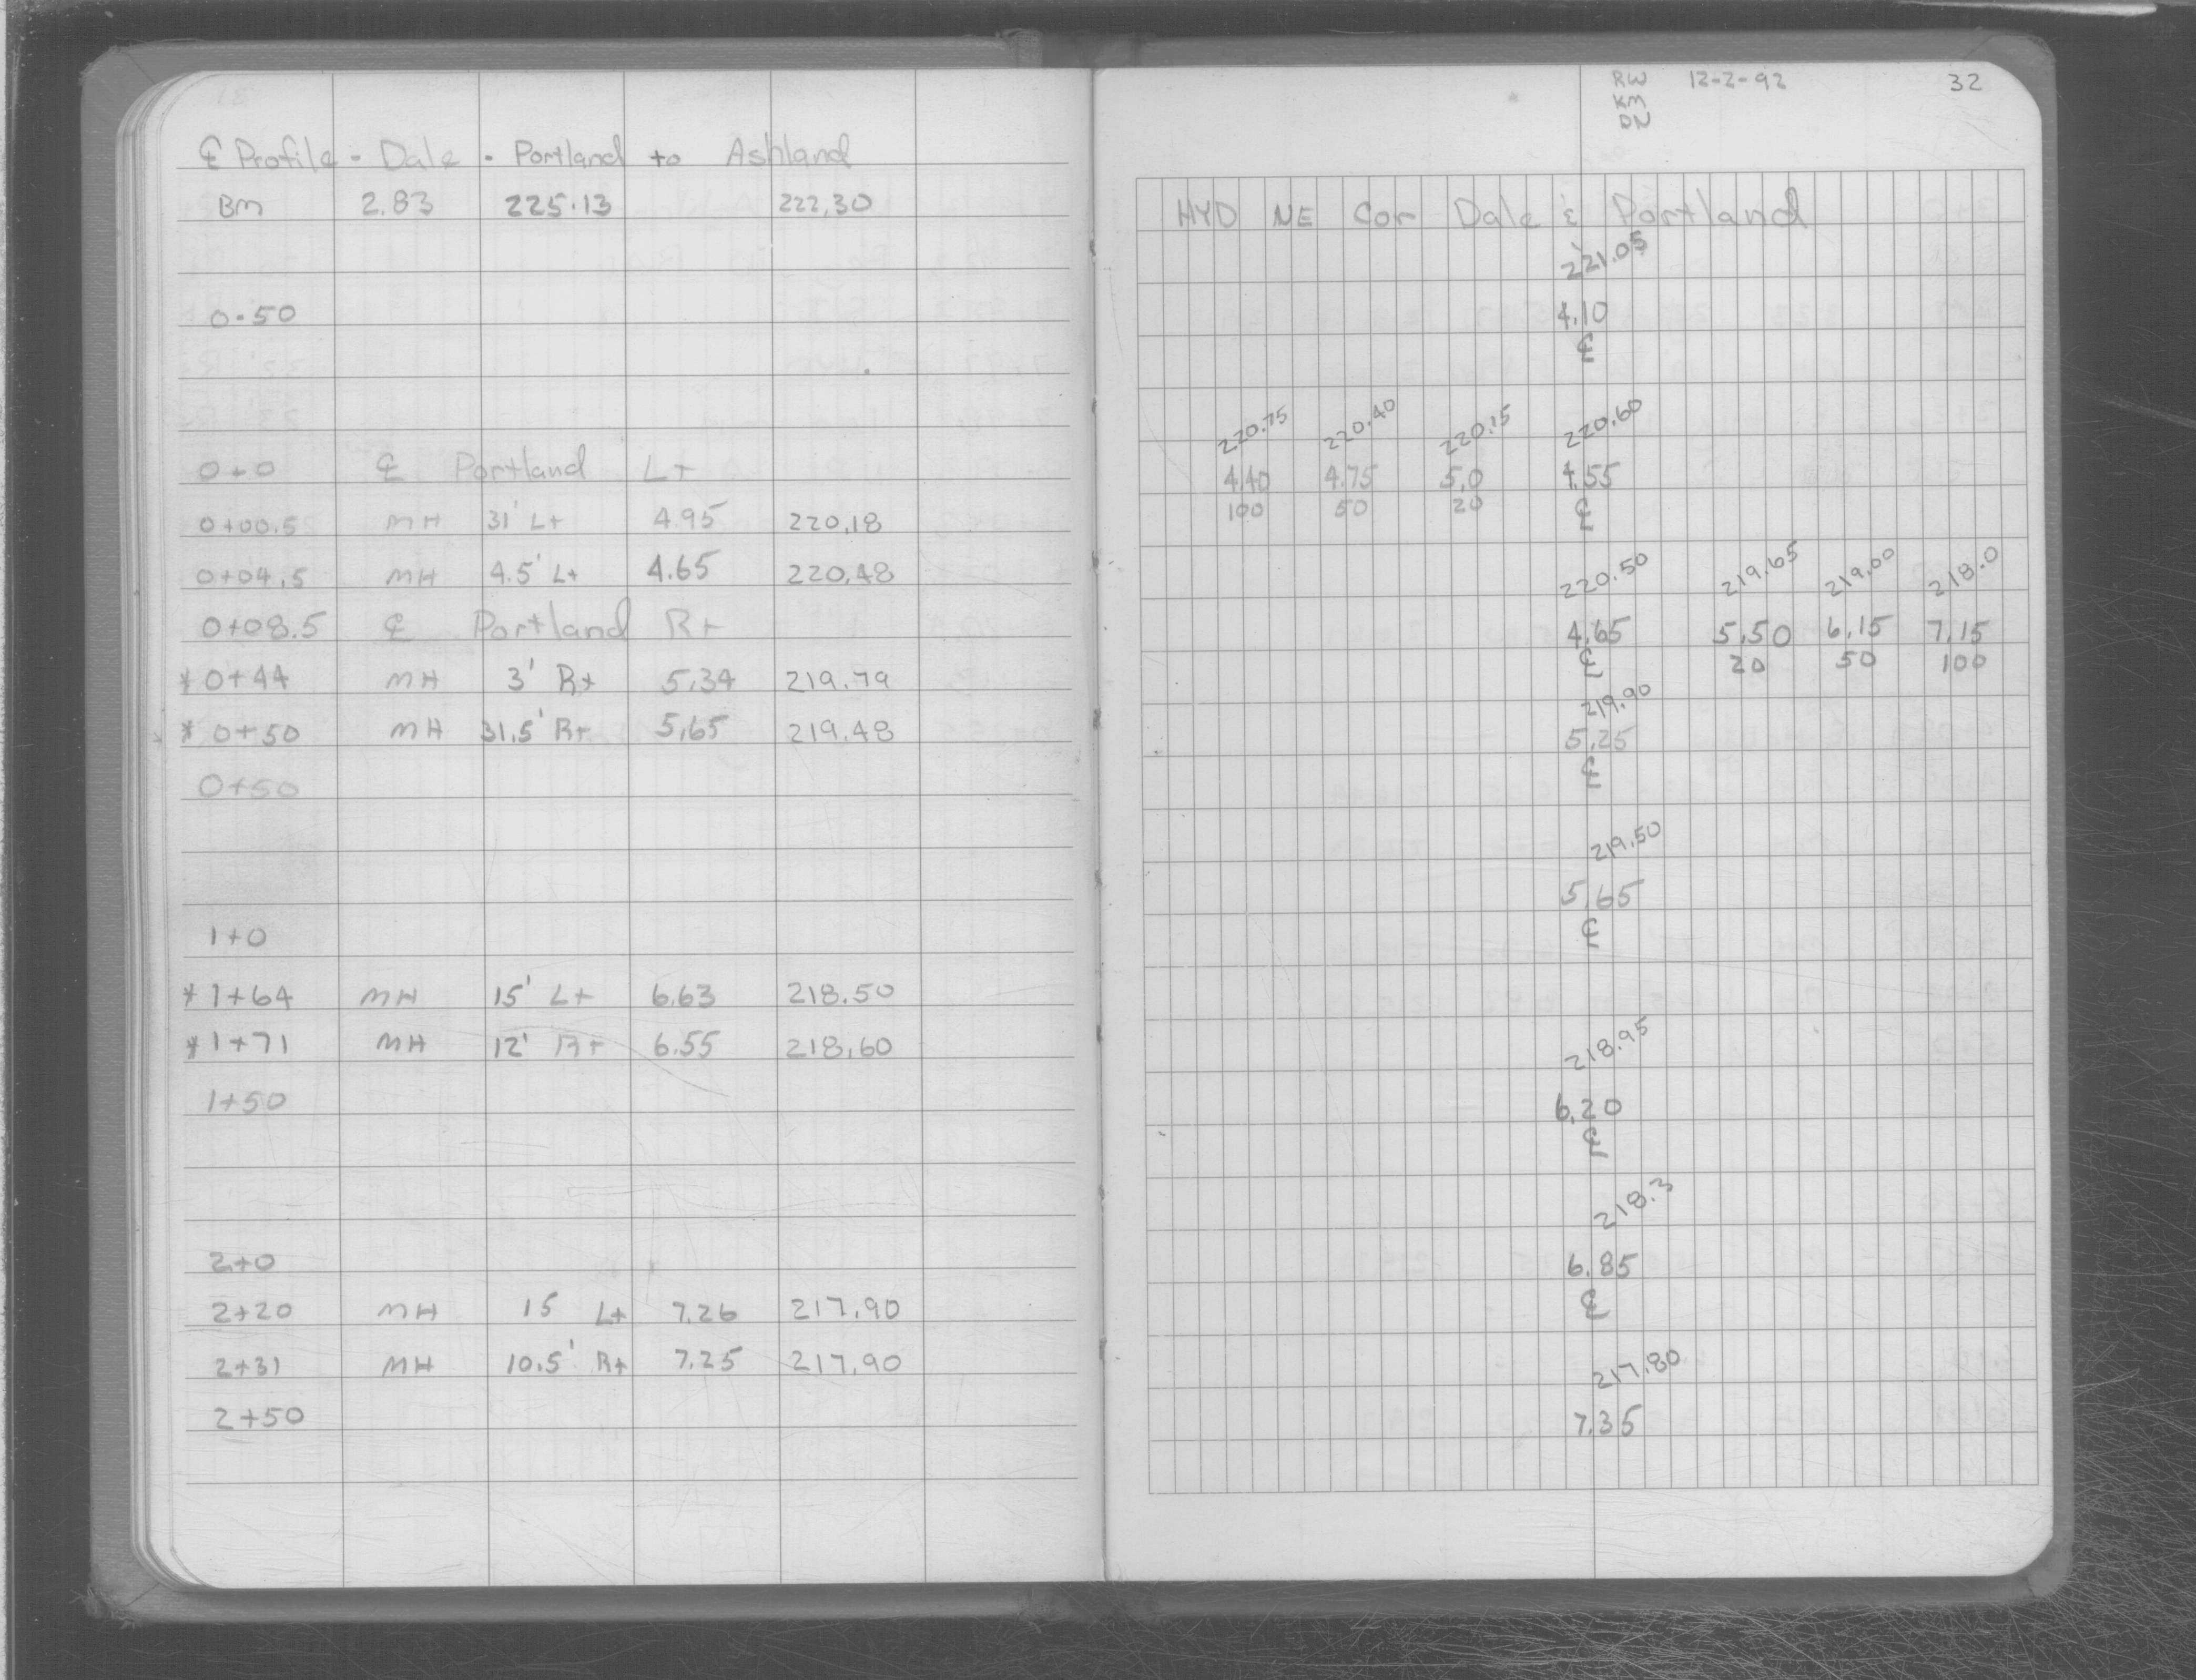 ℄ Profile - Dale - Portland to Ashland
BM 2.83 225.13 222.30
0-50
0+0 ℄ Portland Lt
0+00.5 MH 31' Lt 4.95 220.18
0+04.5 MH 4.5' Lt 4.65 220.48
0+08.5 ℄ Portland Rt
* 0+44 MH 3' Rt 5.34 219.79
* 0+50 MH 31.5' Rt 5.65 219.48
0+50
1+0
* 1+64 MH 15' Lt 6.63 218.50
* 1+71 MH 12' Rt 6.55 218.60
1+50
2+0
2+20 MH 15 Lt 7.26 217.90
2+31 MH 10.5' Rt 7.25 217.90
2+50
RW 12-2-92 32
KM
DN
HYD NE Cor Dale & Portland
221.05
4.10
℄
220.75 220.40 220.15 220.60
4.40 4.75 5.0 4.55
100 50 20 ℄
220.50 219.65 219.00 218.0
4.65 5.50 6.15 7.15
℄ 20 50 100
219.90
5.25
℄
219.50
5.65
℄
218.95
6.20
℄
218.3
6.85
℄
217.80
7.35